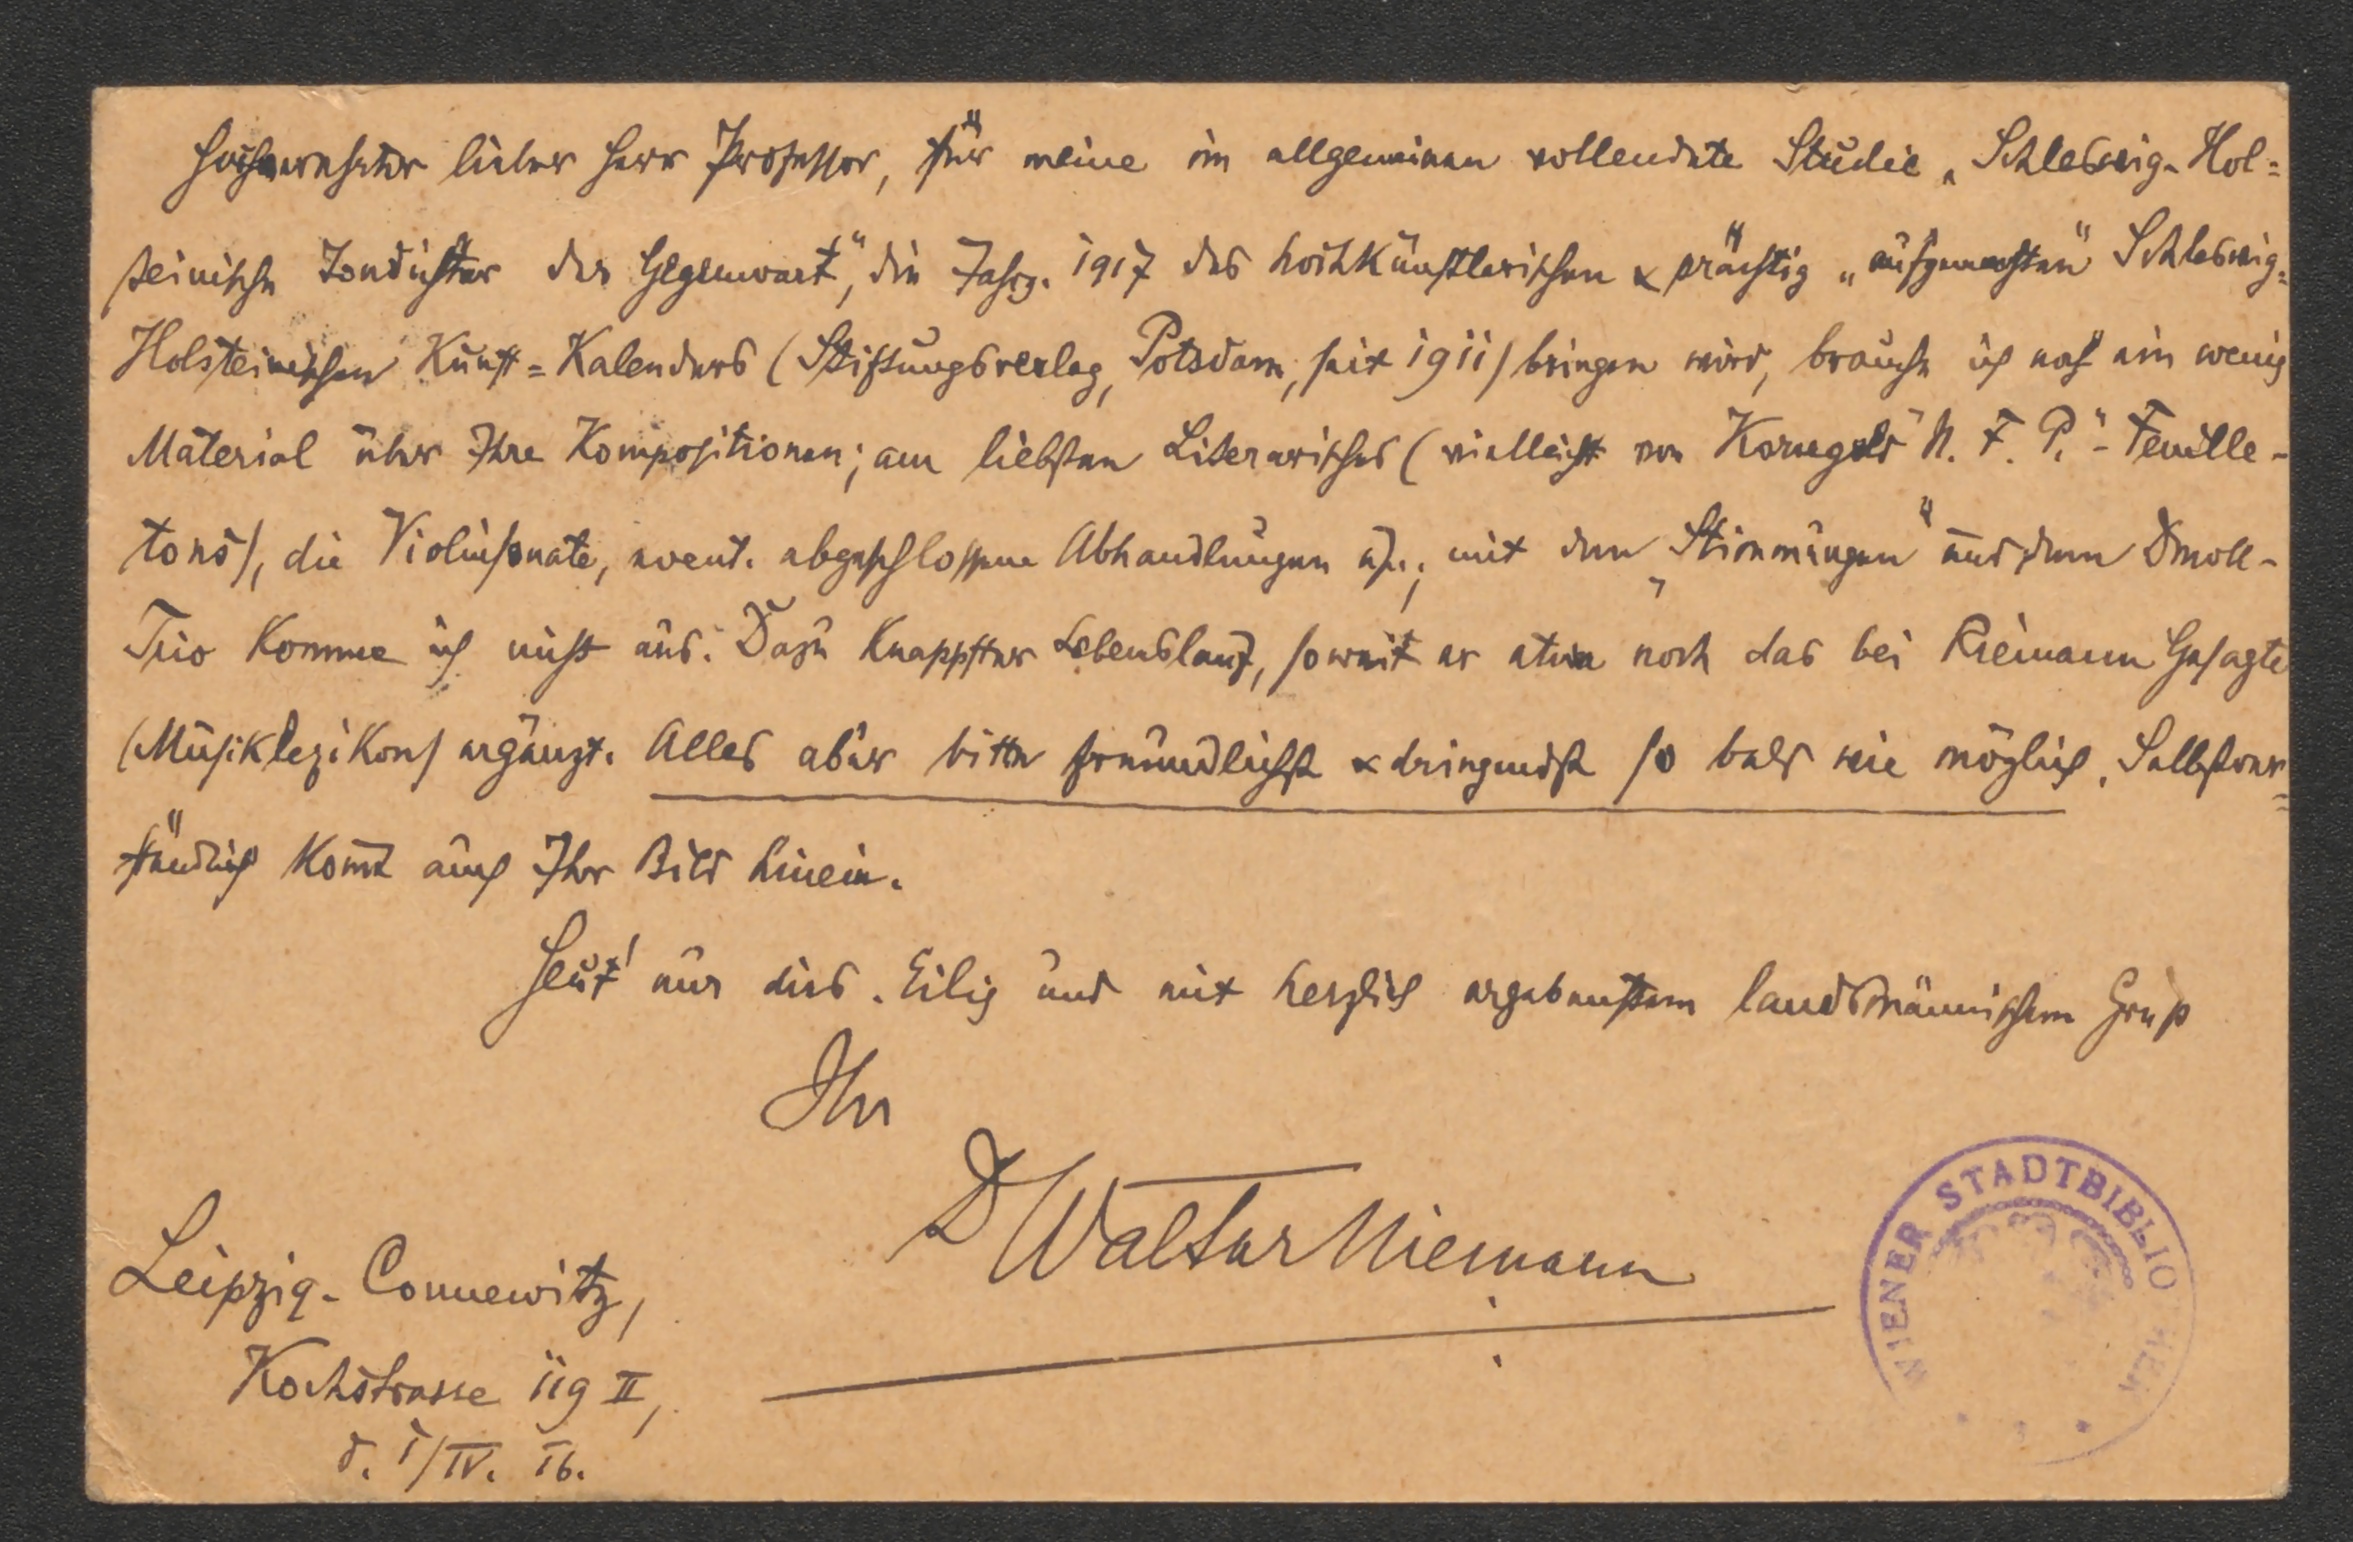 Hochverehrter lieber Herr Professor, für meine im allgemeinen vollendete Studie „Schleswig-Hol=
steinische Tondichter der Gegenwart", die Jahrg. 1917 des hochkünstlerischen & prächtig „aufgemachten" Schleswig=
Holsteinischen Kunst=Kalenders (Stiftungsverlag, Potsdam, seit 1911) bringen wird, brauche ich noch ein wenig
Material über Ihre Kompositionen; am liebsten Literarisches (vielleicht von Korngolds „N. F. P."-Feuille-
tons), die Violinsonate, event. abgeschlossene Abhandlungen usw.; mit den „Stimmungen" und dem Dmoll-
Trio komme ich nicht aus. Dazu knappster Lebenslauf, soweit er etwa noch das bei Riemann Gesagte
(Musiklexikon) ergänzt. Alles aber bitte freundlichst & dringendst so bald wie möglich. Selbstver=
ständlich kom̄t auch Ihr Bild hinein.
Heut' nur dies. Eilig und mit herzlich ergebenstem landsmännischem Gruß
Ihr
D Walter Niemann
Leipzig-Connewitz,
Kochstrasse 119 II,
d. 1/IV. 16.
WIENER STADTBIBLIOTHEK